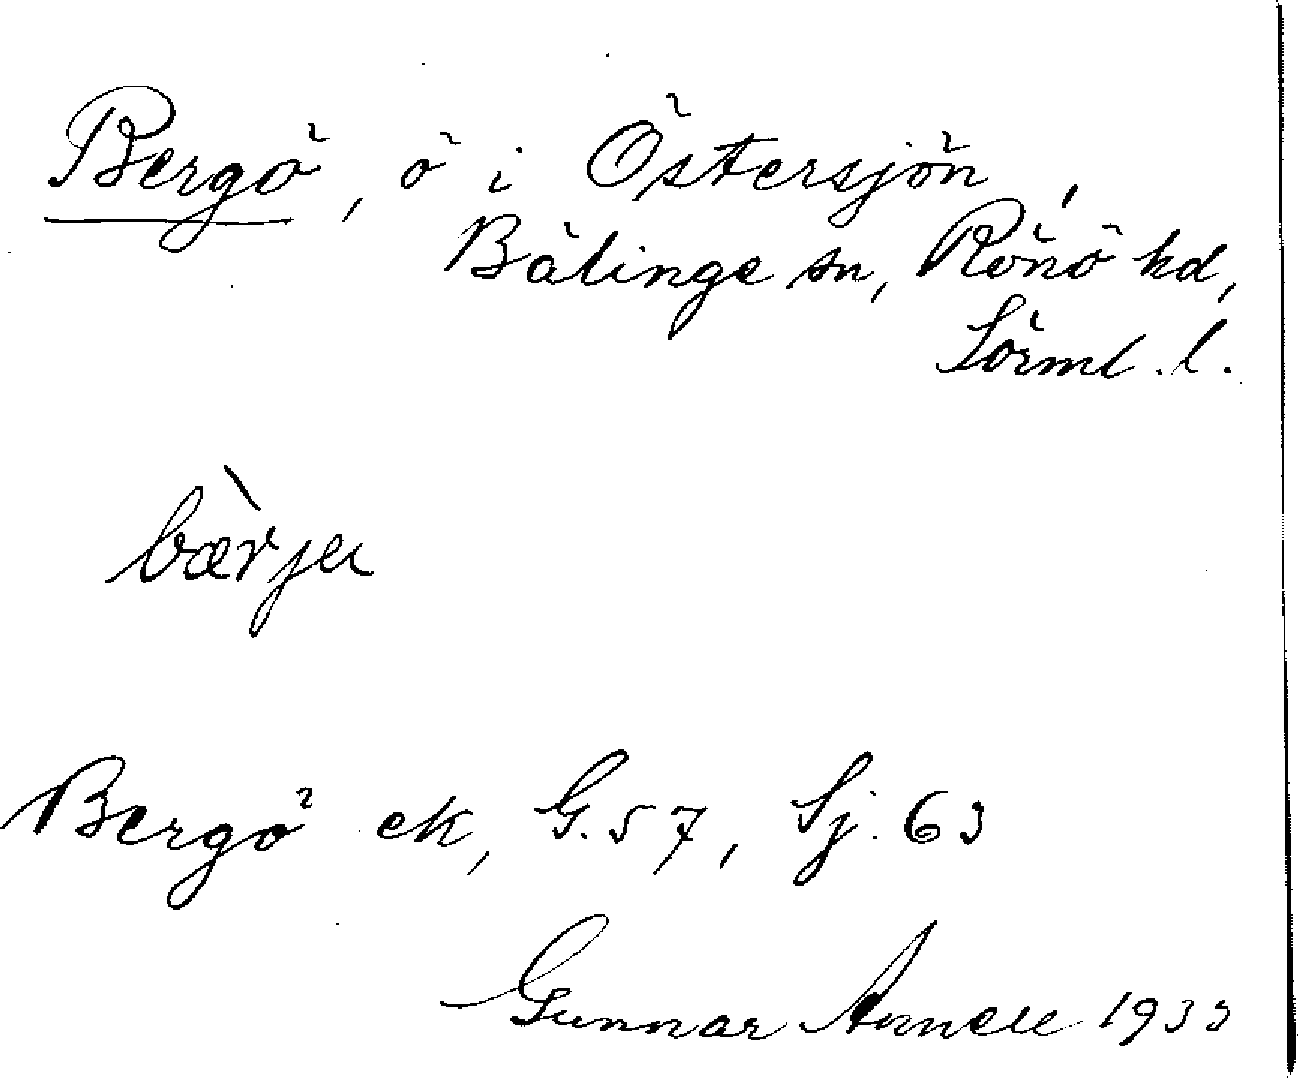 Bergö, ö i Östersjön,
Bälinge sn, Rönö hd,
Sörml. l.
bærjer
Bergö ek, G. 57, Sj. 63
Gunnar Arnell 1933